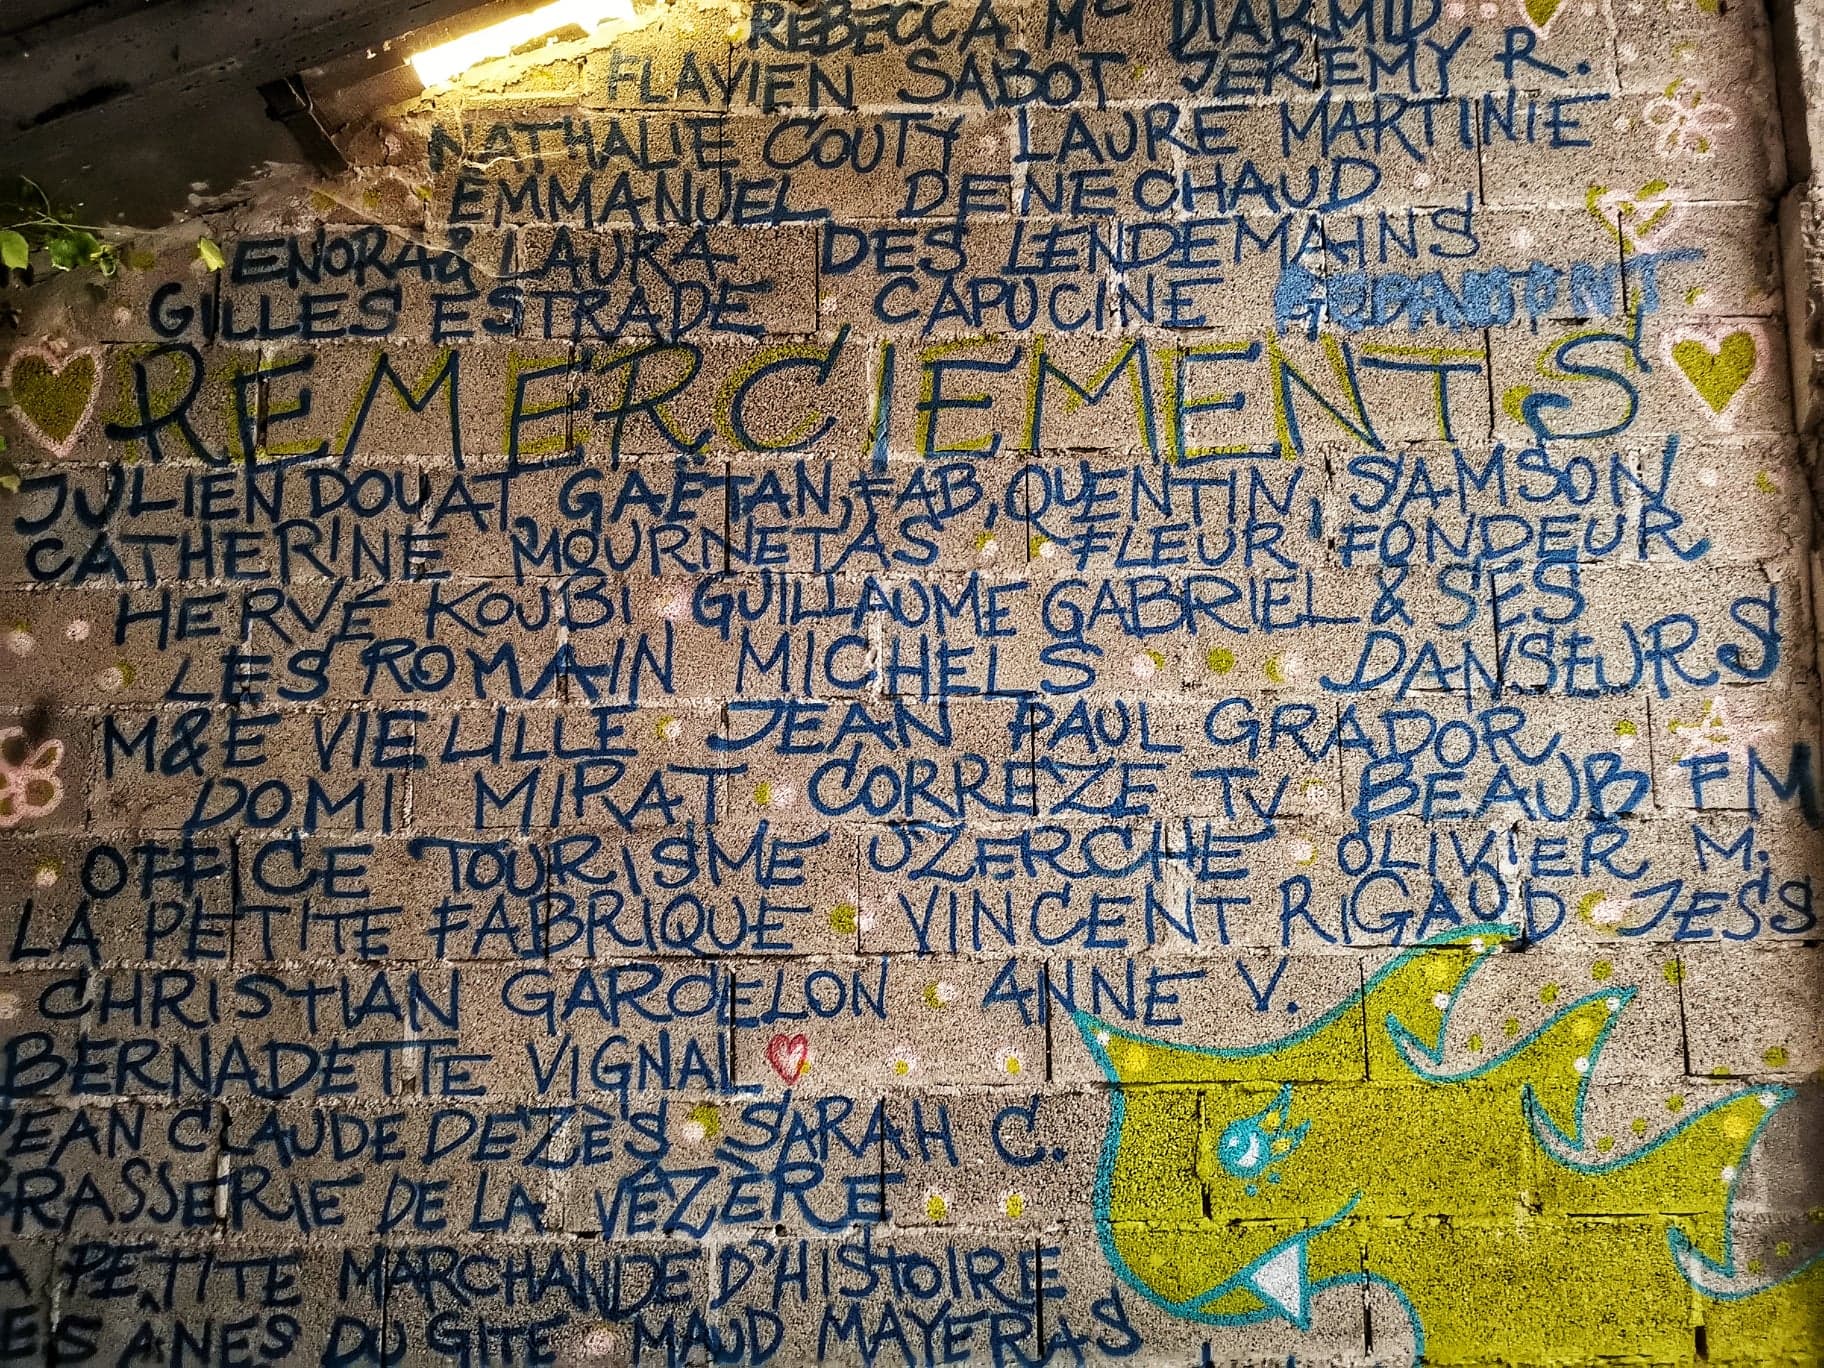 REBECCA Mc DIARMID
FLAVIEN SABOT JEREMY R.
NATHALIE COUTY LAURE MARTINIE
EMMANUEL DENECHAUD
ENORA & LAURA DES LENDEMAINS
GILLES ESTRADE CAPUCINE
REMERCIEMENTS
JULIEN DOUAT, GAËTAN, FAB, QUENTIN, SAMSON
CATHERINE MOURNETAS FLEUR FONDEUR
HERVÉ KOUBI GUILLAUME GABRIEL & SES
LES ROMAIN MICHELS DANSEURS
M&E VIELLILLE JEAN PAUL GRADOR
DOMI MIRAT CORREZE TV BEAUB FM
OFFICE TOURISME UZERCHE OLIVIER M.
LA PETITE FABRIQUE VINCENT RIGAUD JESS
CHRISTIAN GARDELON ANNE V.
BERNADETTE VIGNAL
JEAN CLAUDE DEZÈS SARAH C.
BRASSERIE DE LA VÉZÈRE
A PETITE MARCHANDE D'HISTOIRE
ES ÂNES DU GITE MAUD MAYERAS